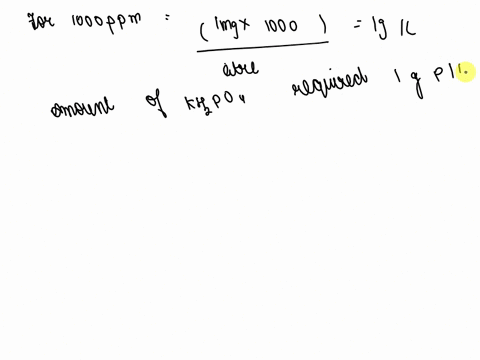 for 1000ppm = (1mg x 1000 ) = 1g
amount of KH2PO4 required 1 g